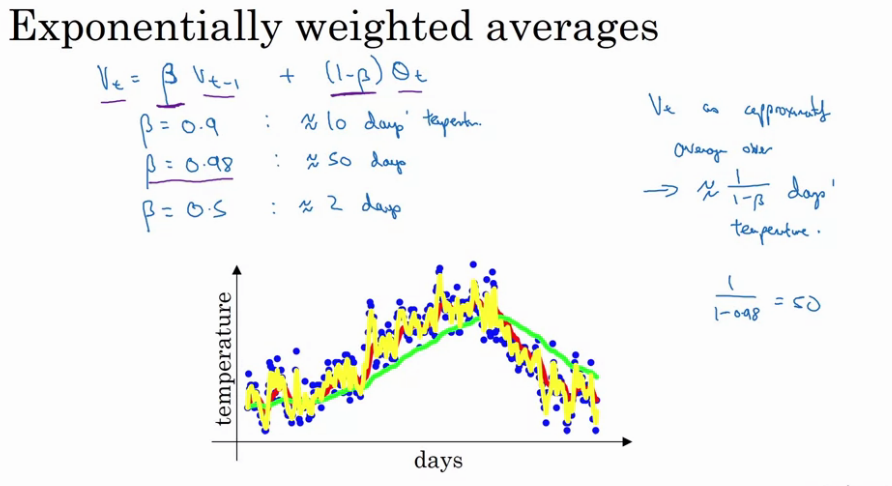 Exponentially weighted averages
Vt = β Vt-1 + (1-β) θt
β = 0.9 : ≈ 10 days'
β = 0.98 : ≈ 50 days
β = 0.5 : ≈ 2 days
Vt as
average over
→ ≈ 1/(1-β) days'
temperature.
1/(1-0.98) = 50
temperature
days